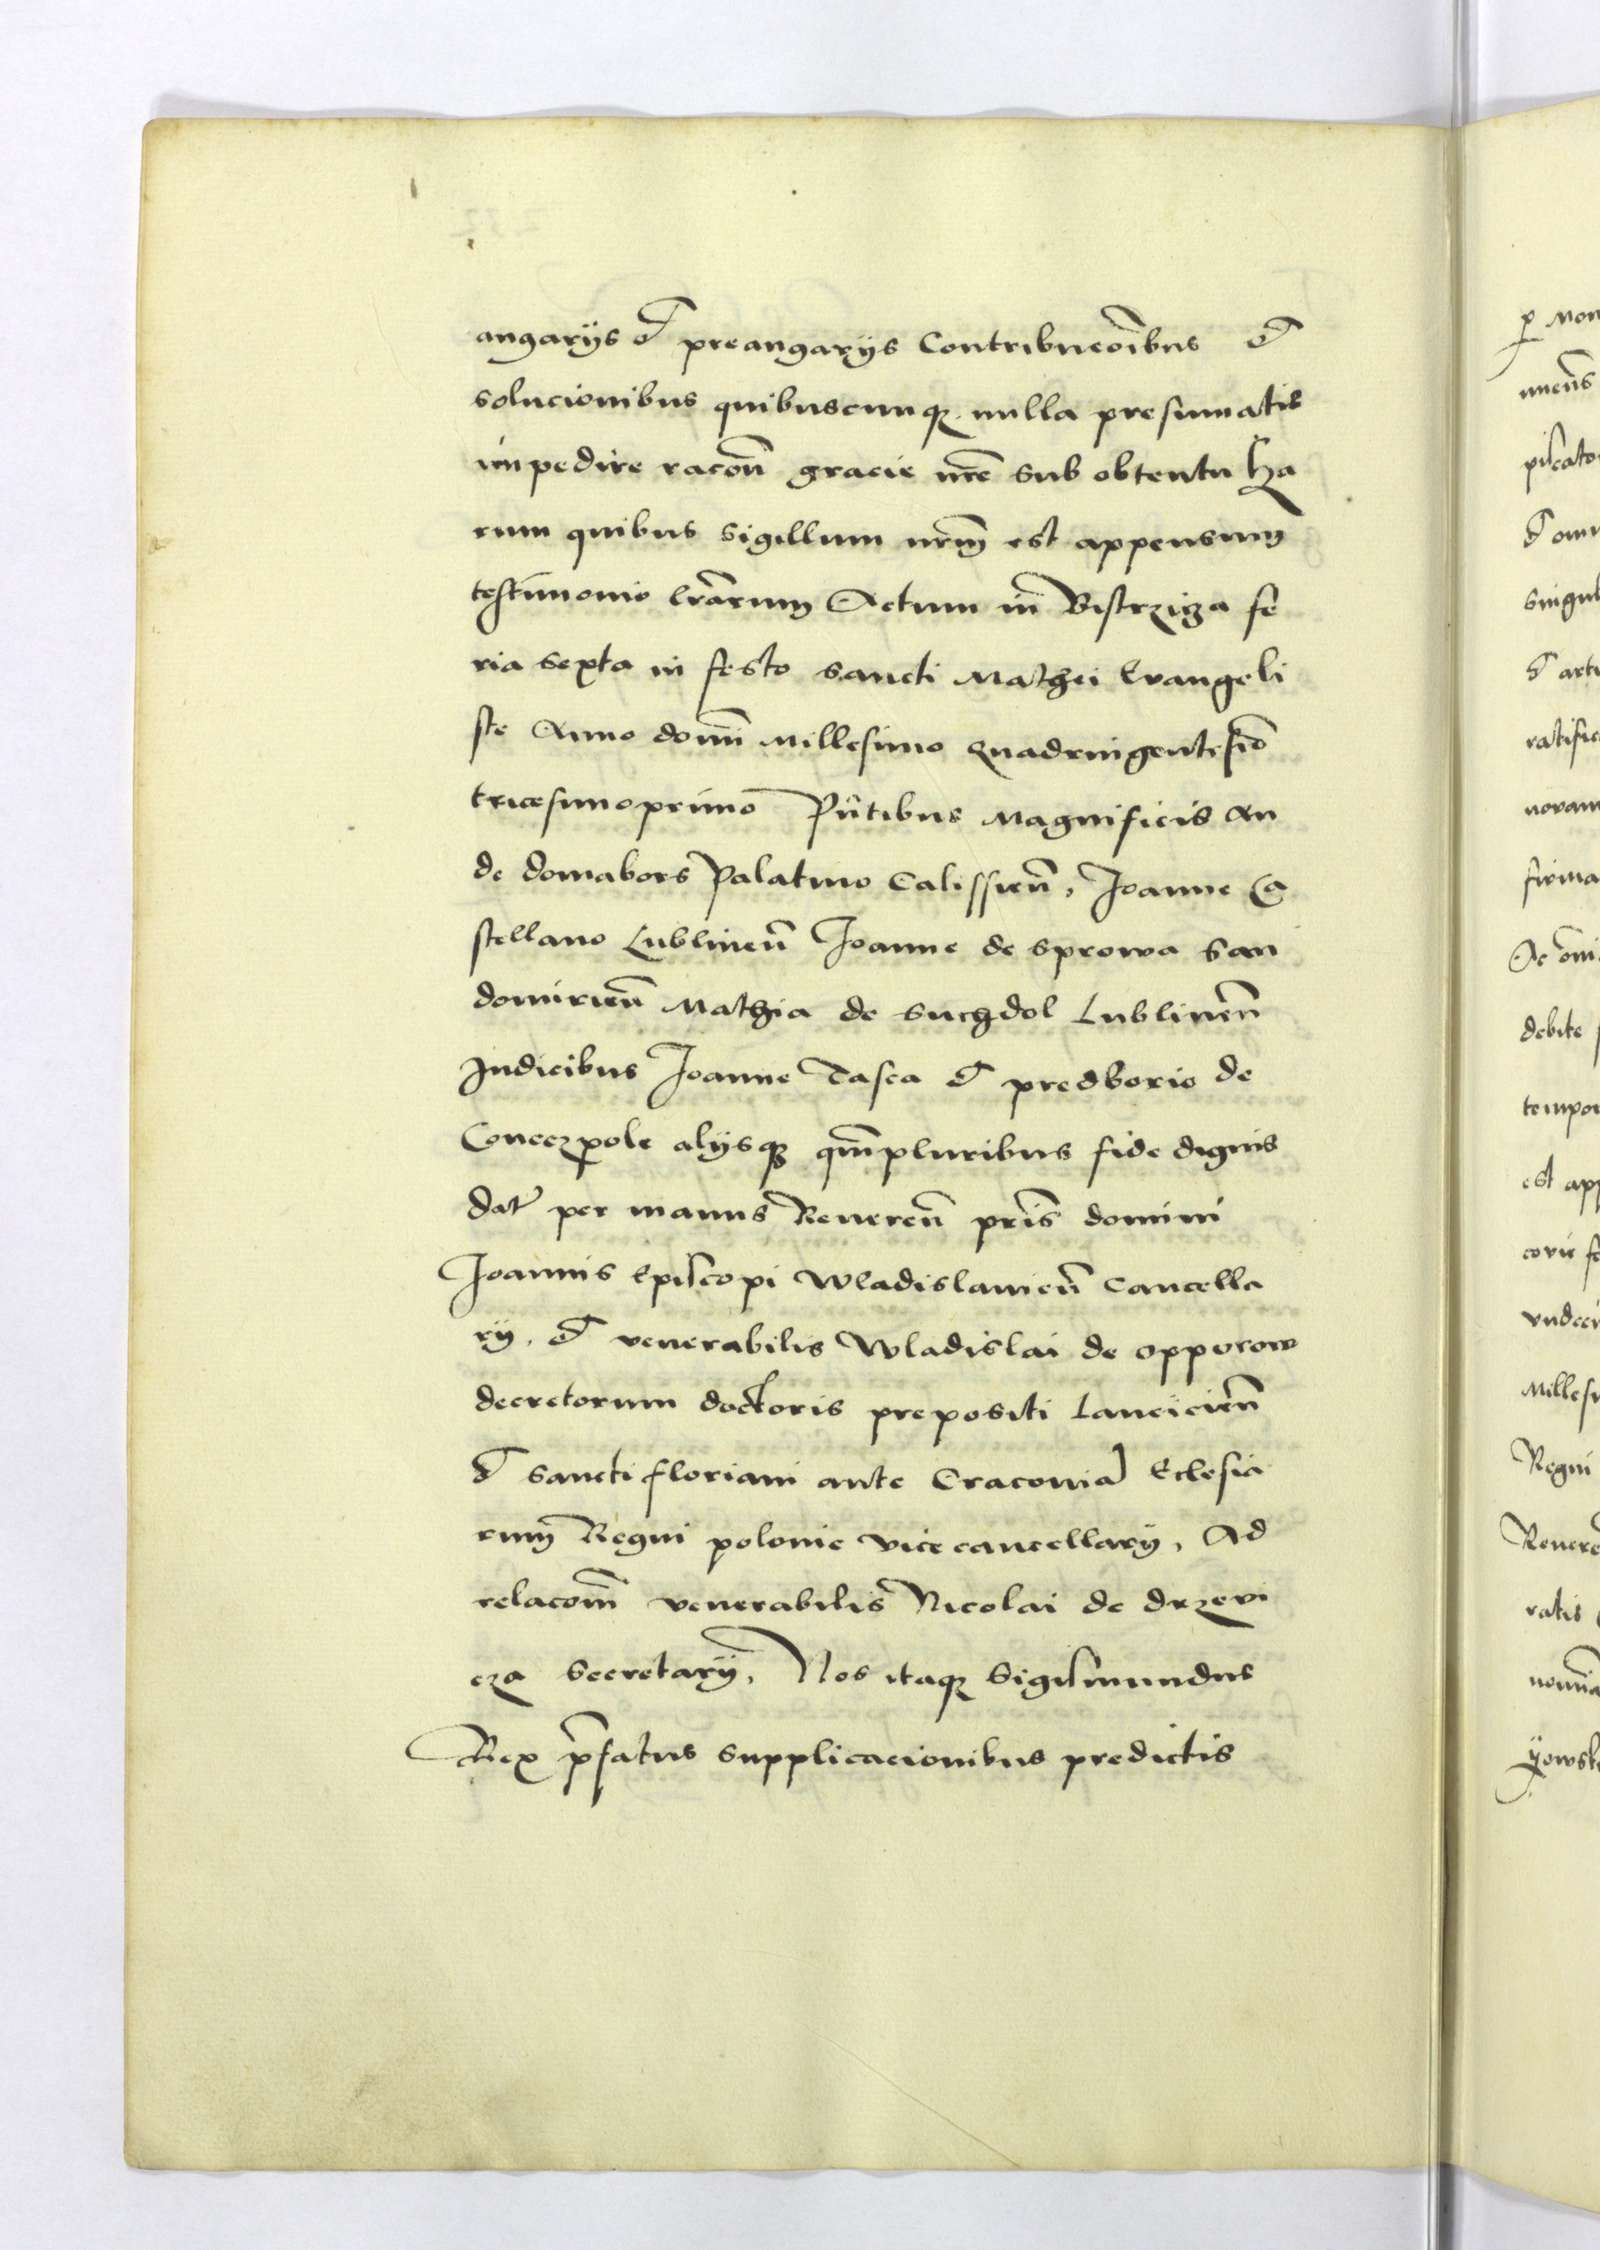 angarijs et preangarijs Contribucõibus et
solucionibus quibuscunq₃ nulla presumatis
impedire racõn gracie nr̃e sub obtentu ha
rum quibus sigillum nrm̃ est appensum
testimonio lr̃arum Actum in Bistrziza fe
ria sexta in festo sancti Mathei Evangeli
ste Anno domĩ Millesimo Quadringentesiõ
tricesimoprimo Pñtibus Magnificis An
de domabors Palatino Calissieñ, Joanne Ca
stellano Lublineñ Joanne de Sprowa San
domirieñ Mathia de Suchdol Lublineñ
Judicibus Joanne Tasca et predborio de
Coneczpole alijsq₃ qm̃pluribus fide dignis
dat̃ per manus Reuereñ pr̃is domini
Joannis Episcopi Wladislauieñ Cancella
rij, et venerabilis Wladislai de Opporow
decretorum doctoris prepositi Lancicieñ
et sancti floriani ante Cracouia Eclesia
rum Regni polonie vicecancellarij, Ad
relacom̃ venerabilis Nicolai de drzevi
cza Secretarij, Nos itaq₃ Sigismundus
Rex p̃fatus supplicacionibus predictis